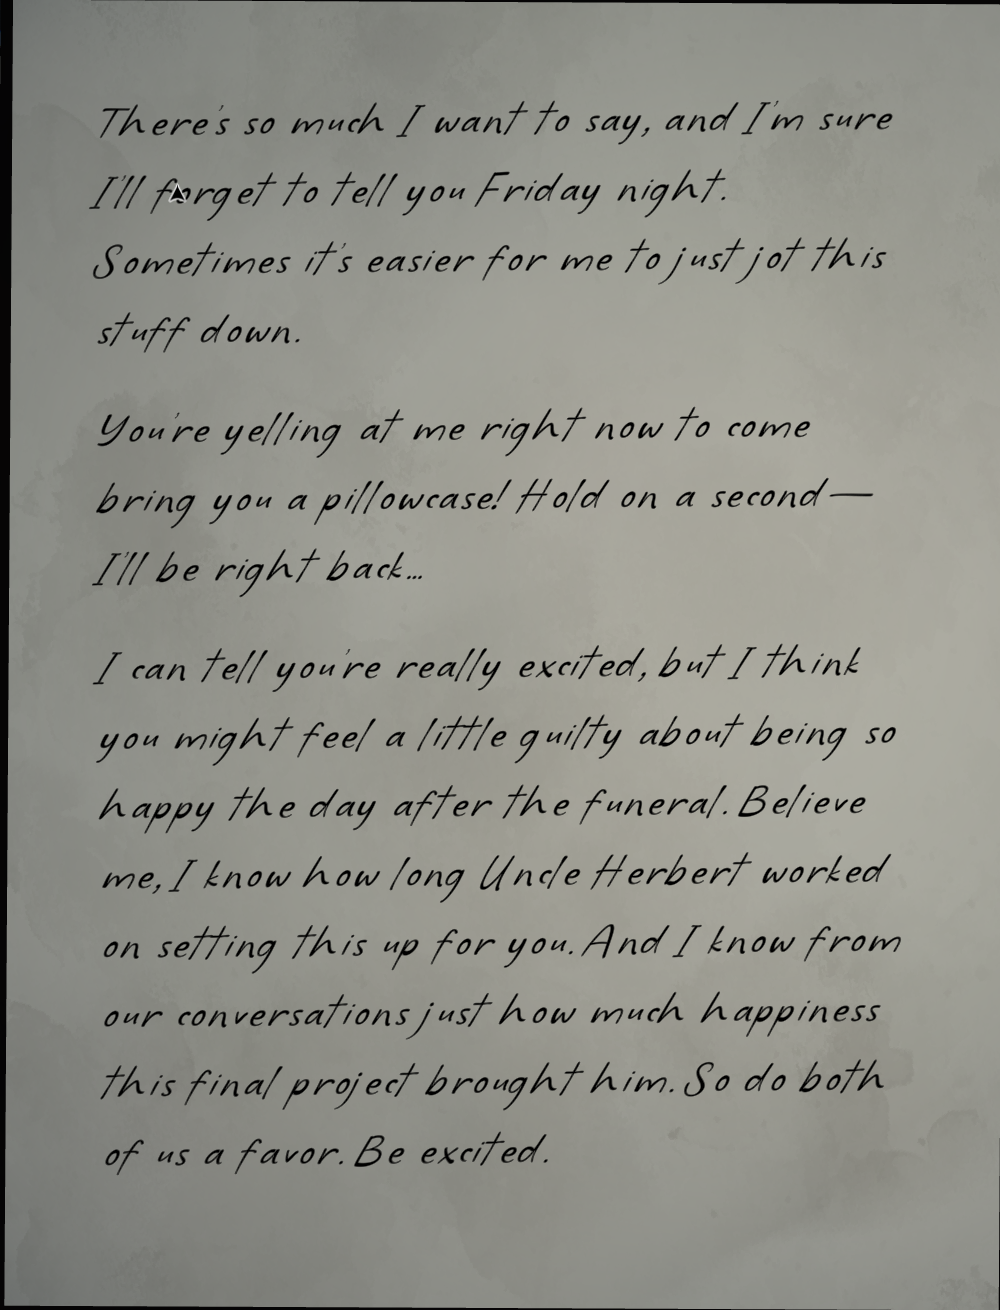 There's so much I want to say, and I'm sure
I'll forget to tell you Friday night.
Sometimes it's easier for me to just jot this
stuff down.
You're yelling at me right now to come
bring you a pillowcase! Hold on a second—
I'll be right back...
I can tell you're really excited, but I think
you might feel a little guilty about being so
happy the day after the funeral. Believe
me, I know how long Uncle Herbert worked
on setting this up for you. And I know from
our conversations just how much happiness
this final project brought him. So do both
of us a favor. Be excited.